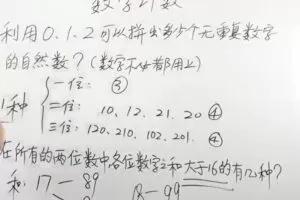 数字计数
利用0.1.2可以拼出多少个无重复数字
的自然数？（数字不必都用上）
一位：③
1种 二位：10、12、21、20 ④
三位：120、210、102、201、④
在所有的两位数中各位数字之和大于16的有几种？
和：17—89
18—99